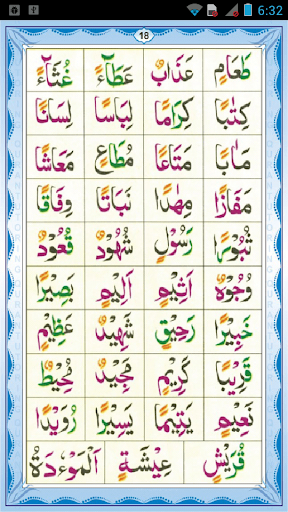 6:32
18
طَعَامٍ عَذَابٌ عَطَآءً غُثَآءً
كِتٰبًا كِرَامًا لِبَاسًا لِسَانًا
مَاٰبًا مَتَاعًا مُطَاعٍ مَعَاشًا
مَفَازًا مِهٰدًا نَبَاتًا وِفَاقًا
ثُبُوْرًا رَسُوْلٍ شُهُوْدٌ قُعُوْدٌ
وُجُوْهٌ اَثِيْمٍ اَلِيْمٍ بَصِيْرًا
خَبِيْرًا رَحِيْقٍ شَهِيْدٌ عَظِيْمٍ
قَرِيْبًا كَرِيْمٍ مَجِيْدٌ مُحِيْطٌ
نَعِيْمٍ يَتِيْمًا يَسِيْرًا رُوَيْدًا
قُرَيْشٍ عِيْشَةٍ اَلْمَوْءٗدَةُ